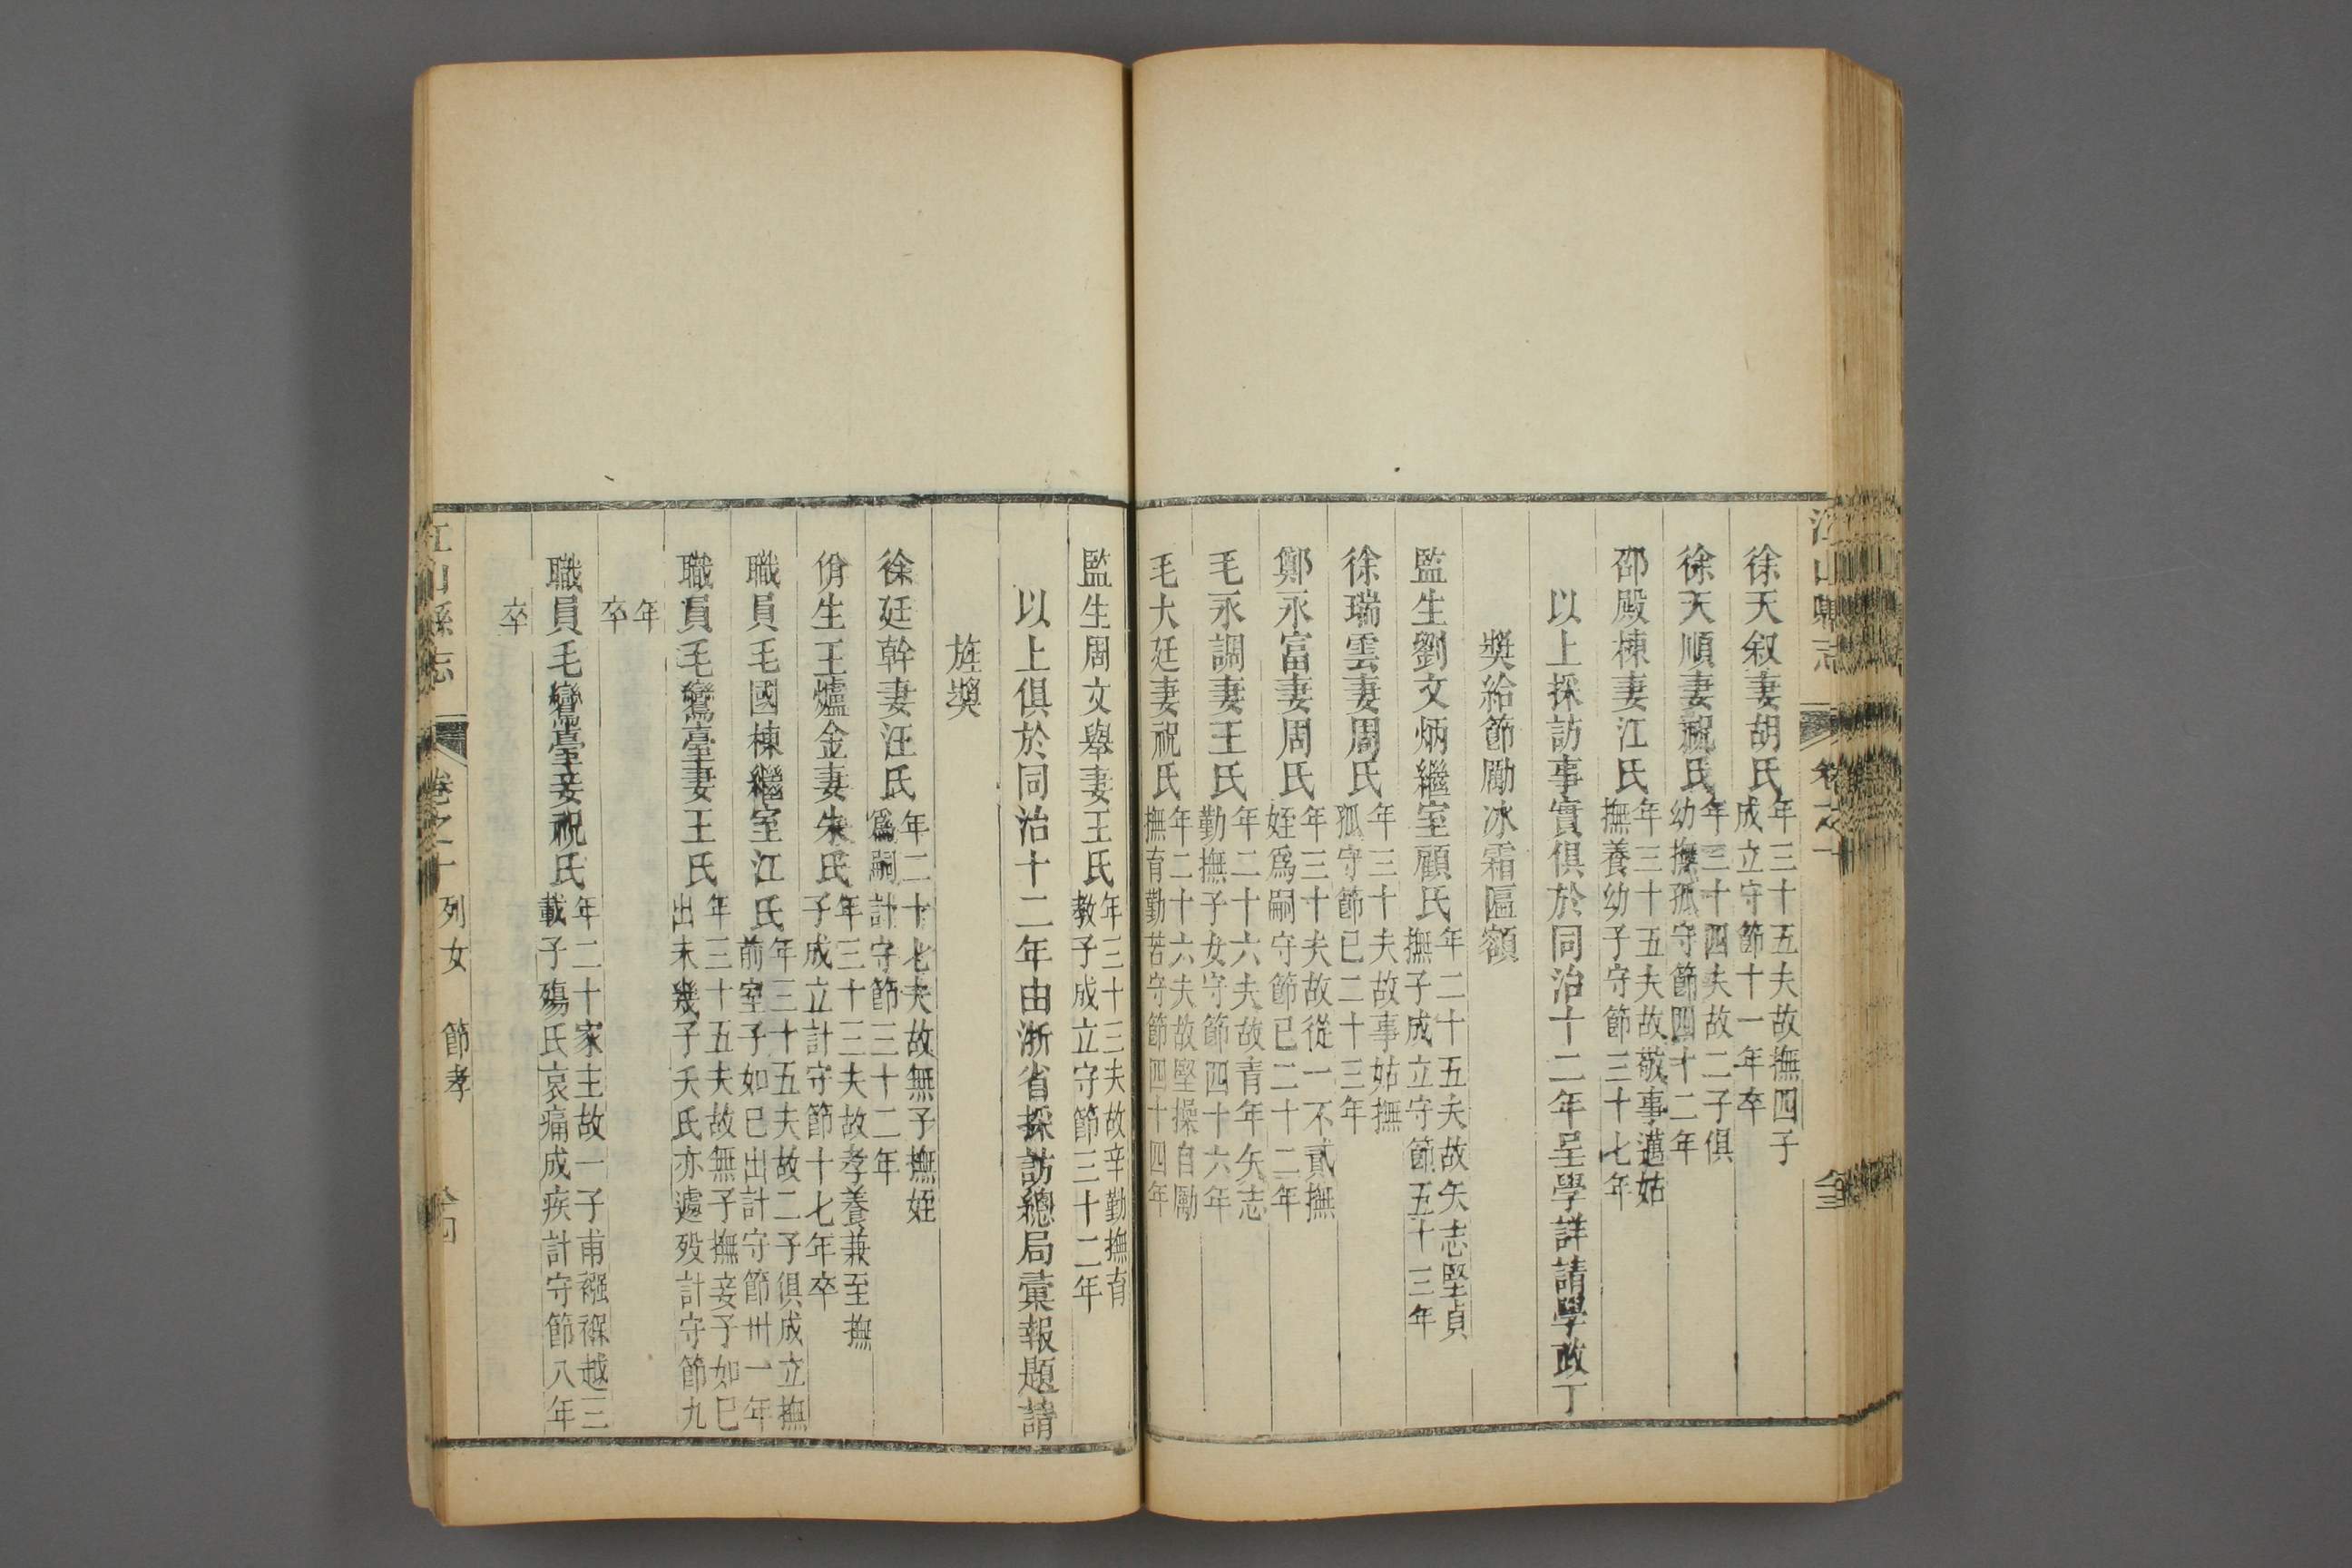 徐天叙妻胡氏年三十五夫故撫四子成立守節十一年卒
徐天順妻祝氏年三十四夫故二子俱幼撫孤守節四十二年
邵殿棟妻江氏年三十五夫故敬事邁姑撫養幼子守節三十七年
以上採訪事實俱於同治十二年呈學詳請學政丁
獎給節勵冰霜匾額
監生劉文炳繼室顧氏年二十五夫故矢志堅貞撫子成立守節五十三年
徐瑞雲妻周氏年三十夫故事姑撫孤守節已二十三年
鄭永富妻周氏年三十夫故從一不貳撫姪爲嗣守節已二十二年
毛永調妻王氏年二十六夫故青年矢志勤撫子女守節四十六年
毛大廷妻祝氏年二十六夫故堅操自勵撫育勤苦守節四十四年
監生周文舉妻王氏年三十三夫故辛勤撫育教子成立守節三十二年
以上俱於同治十二年由浙省採訪總局彙報題請
旌獎
徐廷幹妻汪氏年二十七夫故無子撫姪爲嗣計守節三十二年
佾生王爐金妻朱氏年三十三夫故孝養兼至撫子成立計守節十七年卒
職員毛國棟繼室江氏年三十五夫故二子俱成立撫前室子如已出計守節卅一年
職員毛鸞臺妻王氏年三十五夫故無子撫妾子如已出未幾子夭氏亦遽歿計守節九
年卒
職員毛鸞臺妾祝氏年二十家主故一子甫襁褓越三載子殤氏哀痛成疾計守節八年
卒
江山縣志 卷之十 列女 節孝